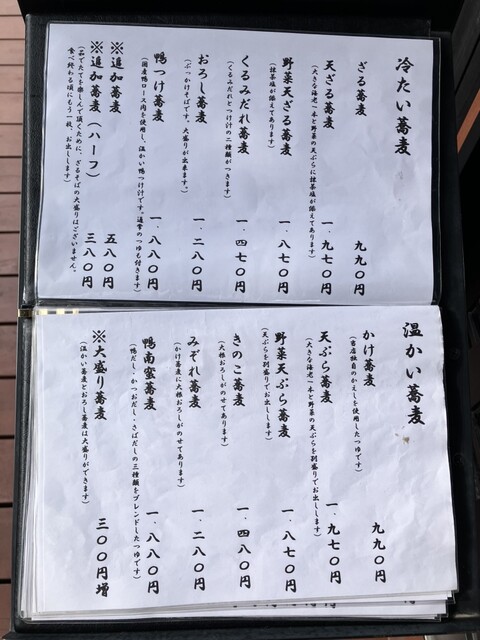 冷たい蕎麦
ざる蕎麦 九九〇円
天ざる蕎麦 一、九七〇円
(大きな海老一本と野菜の天ぷらに抹茶塩が添えてあります)
野菜天ざる蕎麦 一、八七〇円
(抹茶塩が添えてあります)
くるみだれ蕎麦 一、四七〇円
(くるみだれとつけ汁の二種類がつきます)
おろし蕎麦 一、二八〇円
(ぶっかけそばです。大盛りが出来ます。)
鴨つけ蕎麦 一、八八〇円
(国産鴨ロース肉を使用し、温かい鴨つけ汁です。通常のつゆも付きます)
※追加蕎麦 五八〇円
※追加蕎麦(ハーフ) 三八〇円
(茹でたてを楽しんで頂くために、ざるそばの大盛りはございません。
食べ終わる頃にもう一枚、お出しします)
温かい蕎麦
かけ蕎麦 九九〇円
(当店独自のかえしを使用したつゆです)
天ぷら蕎麦 一、九七〇円
(大きな海老一本と野菜の天ぷらを別盛りでお出しします)
野菜天ぷら蕎麦 一、八七〇円
(天ぷらを別盛りでお出しします)
きのこ蕎麦 一、四八〇円
(大根おろしがのせてあります)
みぞれ蕎麦 一、二八〇円
(かけ蕎麦に大根おろしがのせてあります)
鴨南蛮蕎麦 一、八八〇円
(鴨だし・かつおだし・さばだしの三種類をブレンドしたつゆです)
※大盛り蕎麦 三〇〇円増
(温かい蕎麦とおろし蕎麦は大盛りができます)